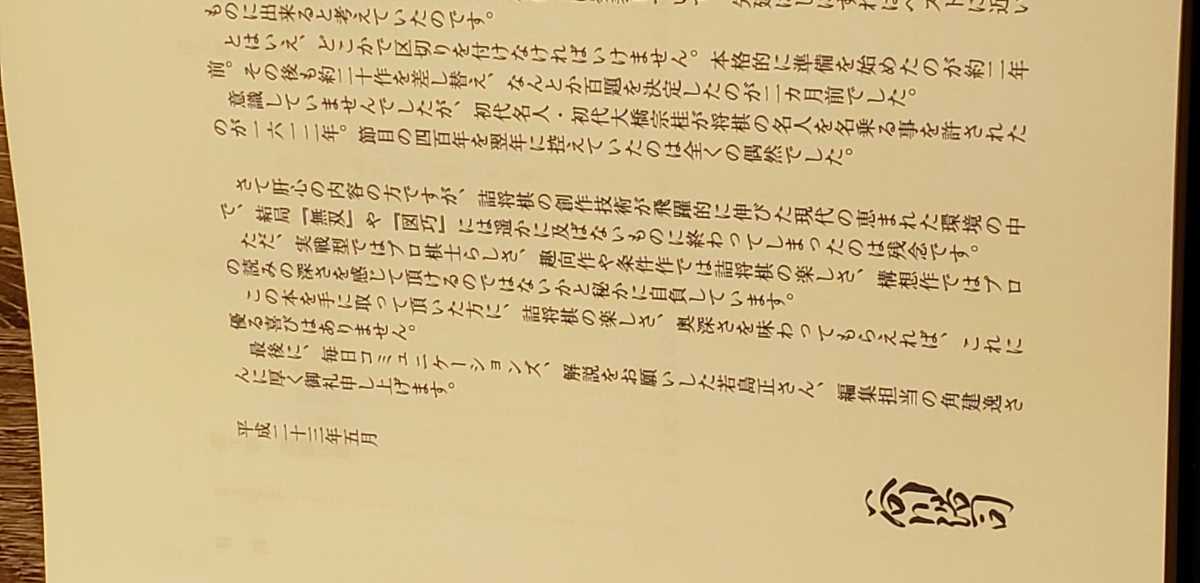 ものに出来ると考えていたのです。
とはいえ、どこかで区切りを付けなければいけません。本格的に準備を始めたのが約二年
前。その後も約二十作を差し替え、なんとか百題を決定したのが二カ月前でした。
意識していませんでしたが、初代名人・初代大橋宗桂が将棋の名人を名乗る事を許された
のが一六一二年。節目の四百年を翌年に控えていたのは全くの偶然でした。
さて肝心の内容の方ですが、詰将棋の創作技術が飛躍的に伸びた現代の恵まれた環境の中
で、結局『無双』や『図巧』には遥かに及ばないものに終わってしまったのは残念です。
ただ、実戦型ではプロ棋士らしさ、趣向作や条件作では詰将棋の楽しさ、構想作ではプロ
の読みの深さを感じて頂けるのではないかと秘かに自負しています。
この本を手に取って頂いた方に、詰将棋の楽しさ、奥深さを味わってもらえれば、これに
優る喜びはありません。
最後に、毎日コミュニケーションズ、解説をお願いした若島正さん、編集担当の角建逸さ
んに厚く御礼申し上げます。
平成二十三年五月
谷川浩司